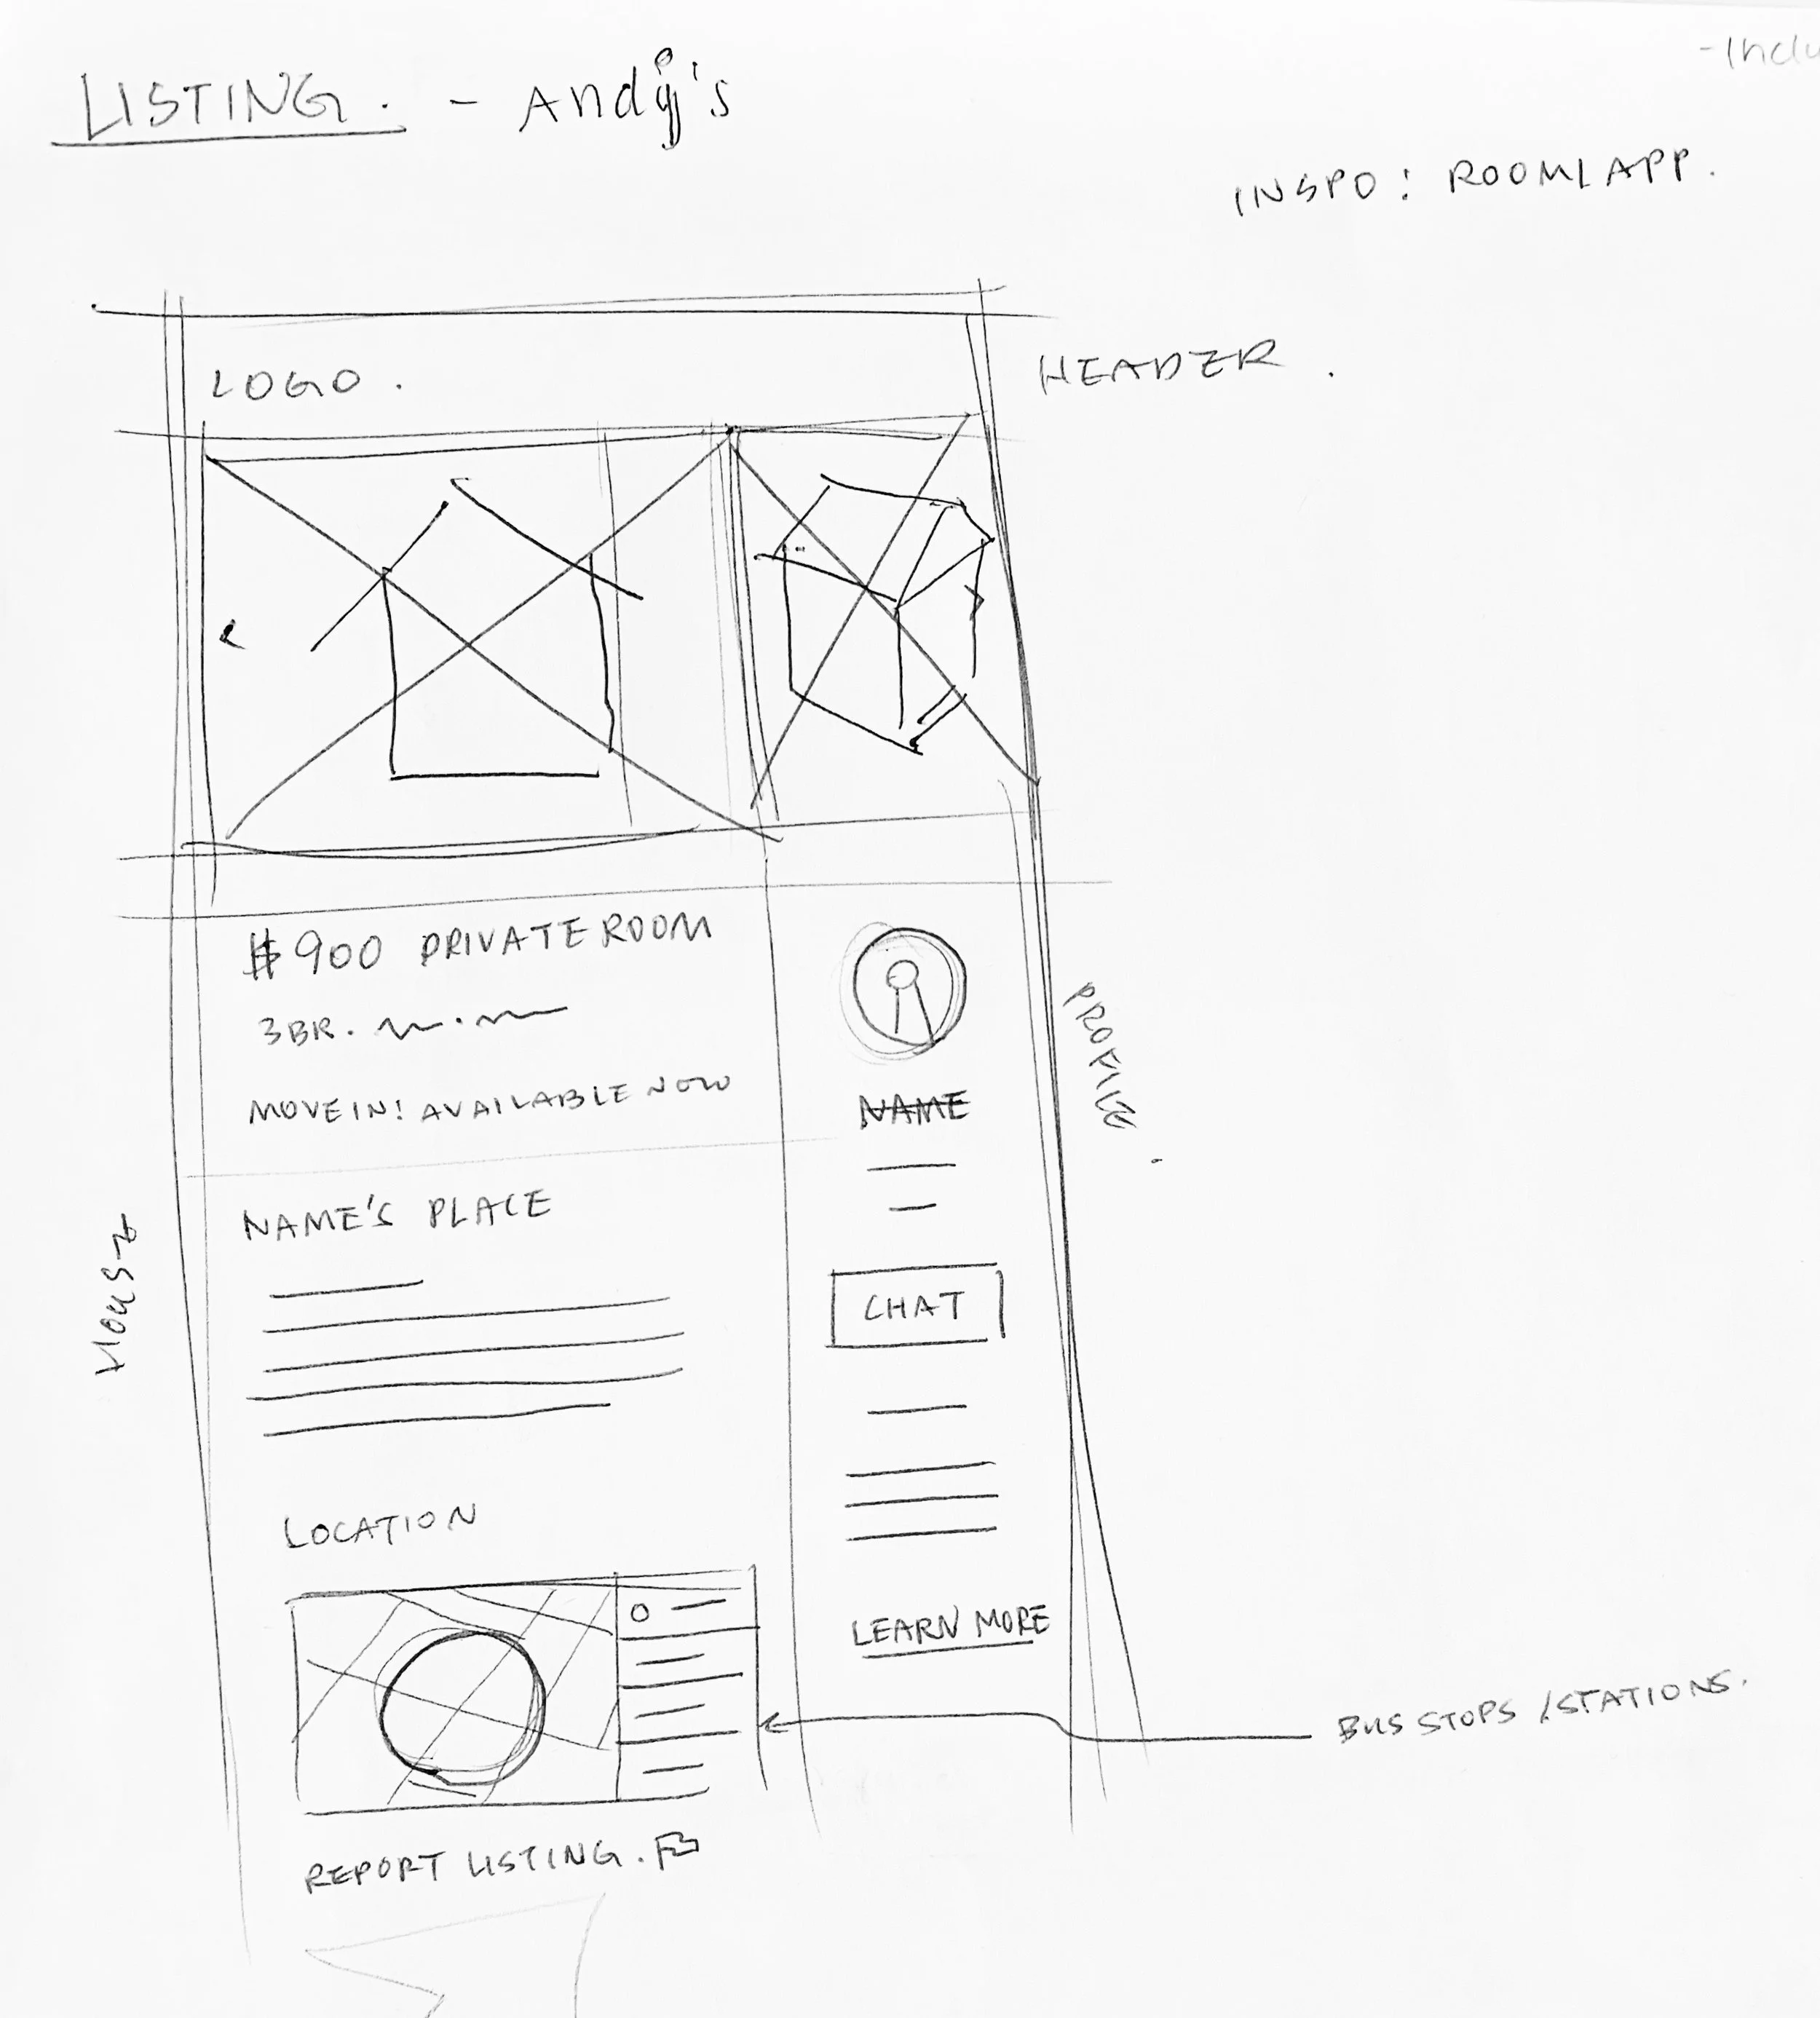 LISTING. - Andy's
-Inclu
INSPO: ROOMI APP.
LOGO.
HEADER.
$900 PRIVATE ROOM
3BR.
MOVE IN! AVAILABLE NOW
NAME
PROFILE.
NAME'S PLACE
HOUSE
CHAT
LOCATION
LEARN MORE
BUS STOPS / STATIONS.
REPORT LISTING.